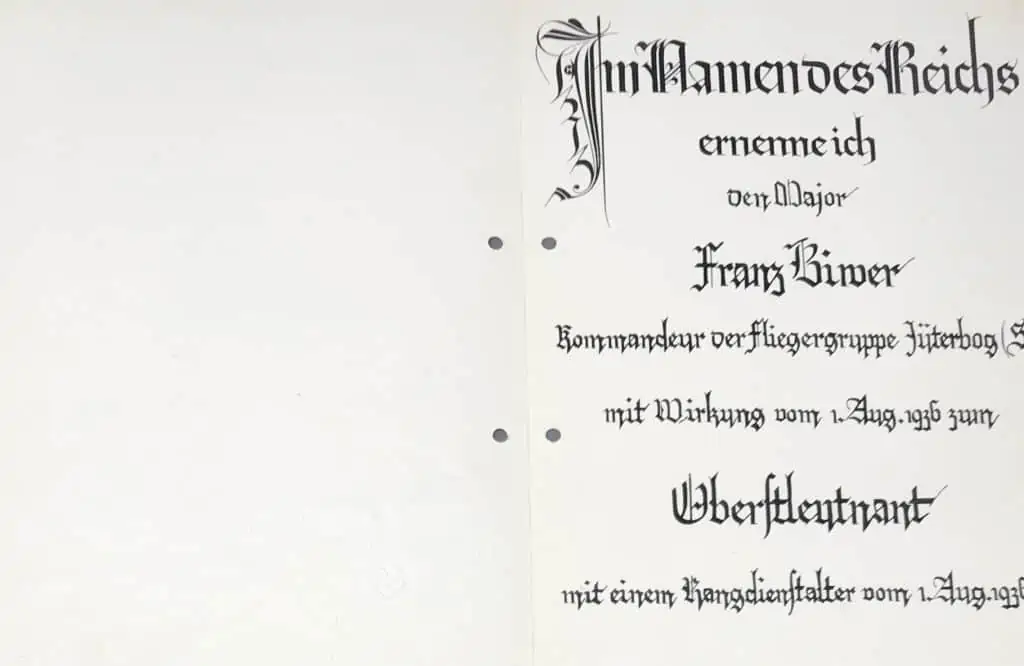 Im Namen des Reichs
ernenne ich
den Major
Franz Biwer
Kommandeur der Fliegergruppe Jüterbog (S
mit Wirkung vom 1. Aug. 1936 zum
Oberstleutnant
mit einem Rangdienstalter vom 1. Aug. 1936